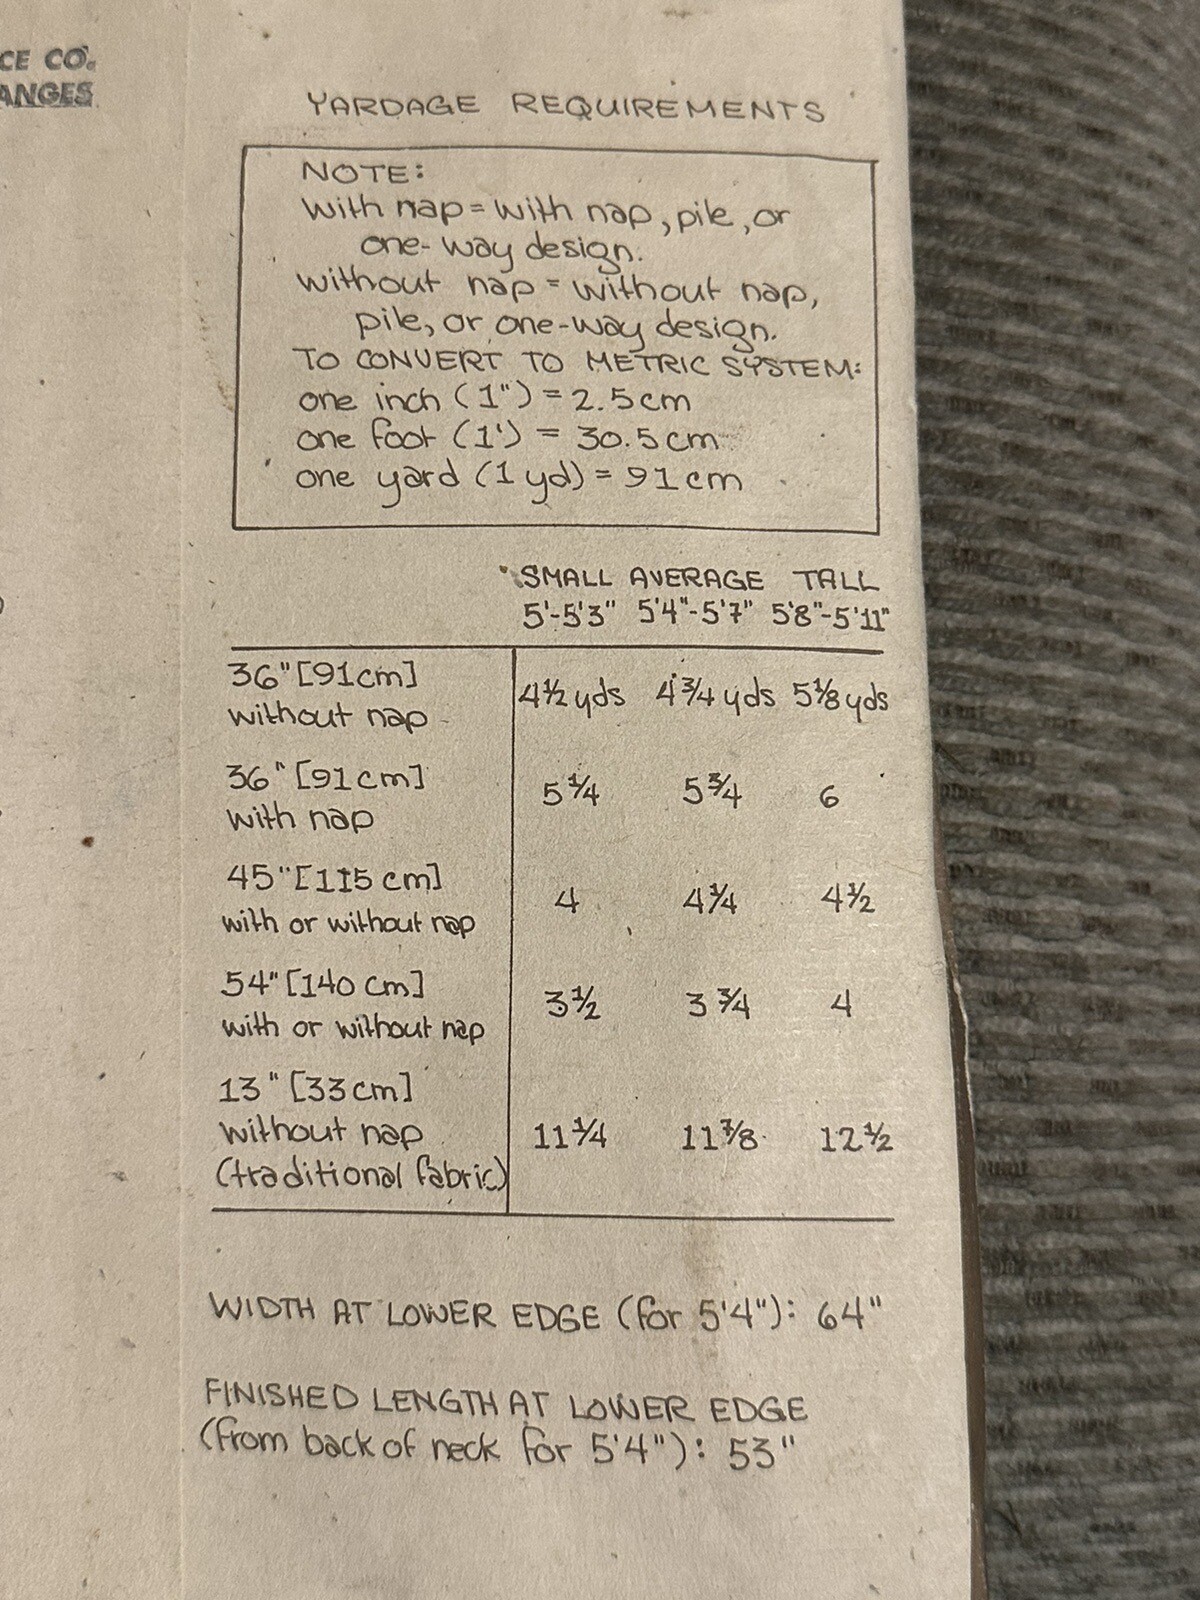 CE CO.
ANGES
YARDAGE REQUIREMENTS
NOTE:
with nap = with nap, pile, or
one-way design.
without nap = without nap,
pile, or one-way design.
TO CONVERT TO METRIC SYSTEM:
one inch (1") = 2.5cm
one foot (1') = 30.5cm
one yard (1 yd) = 91cm
SMALL AVERAGE TALL
5'-5'3" 5'4"-5'7" 5'8"-5'11"
36" [91cm]
without nap 4½ yds 4¾ yds 5⅛ yds
36" [91cm]
with nap 5¼ 5¾ 6
45" [115 cm]
with or without nap 4 4¼ 4½
54" [140 cm]
with or without nap 3½ 3¾ 4
13" [33cm]
without nap 11¼ 11⅞ 12½
(traditional fabric)
WIDTH AT LOWER EDGE (for 5'4"): 64"
FINISHED LENGTH AT LOWER EDGE
(from back of neck for 5'4"): 53"